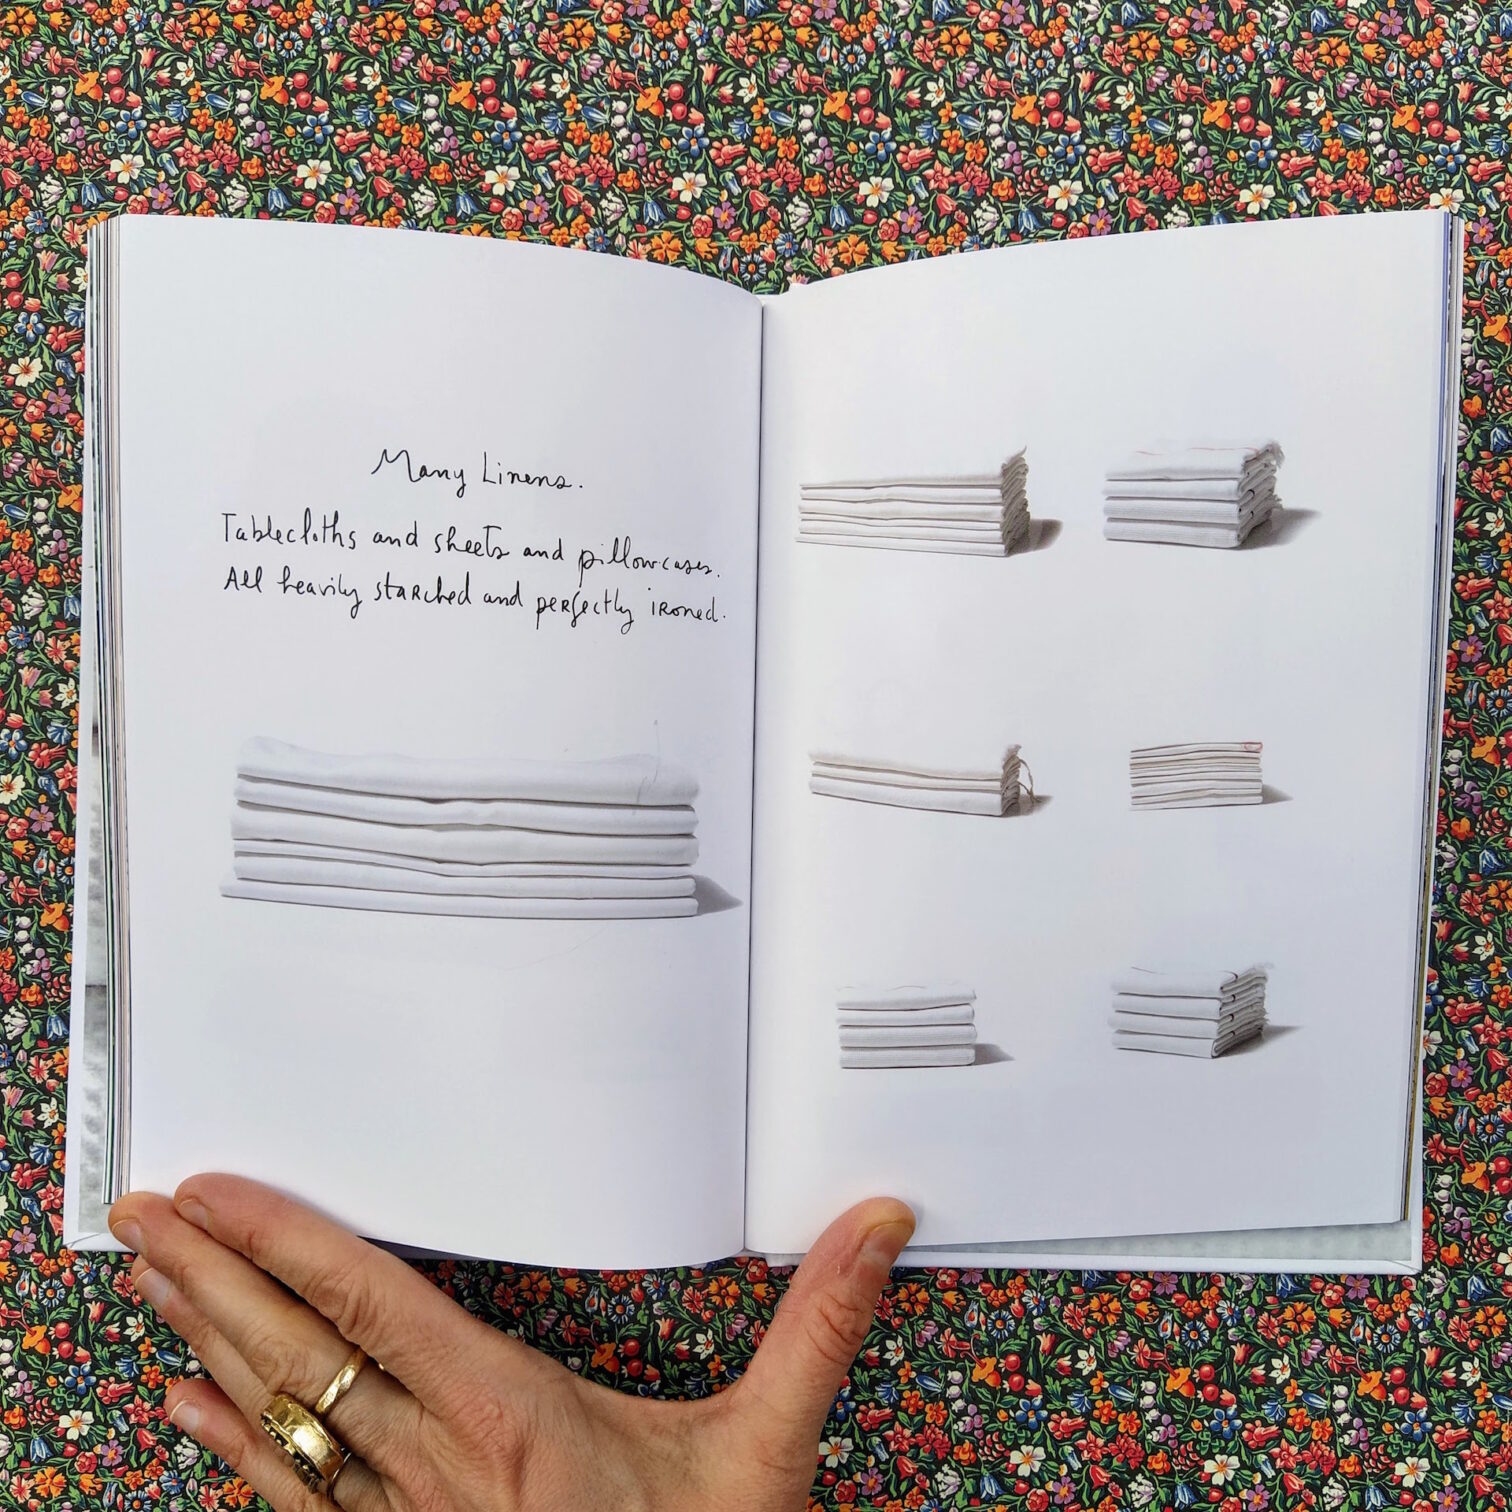 Many Linens.
Tablecloths and sheets and pillowcases.
All heavily starched and perfectly ironed.